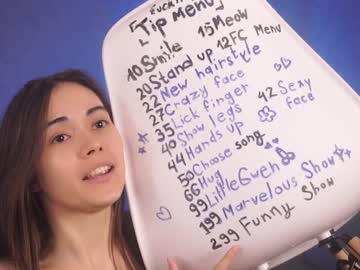 「Tip Menu」
10 Smile 15 Meow
20 Stand up 12 FC Menu
22 New hairstyle
27 Crazy face
35 Lick finger
40 Show legs 42 Sexy face
44 Hands up
50 Choose song
66 Hug
99 Little Gwen
199 Marvelous Show
299 Funny Show